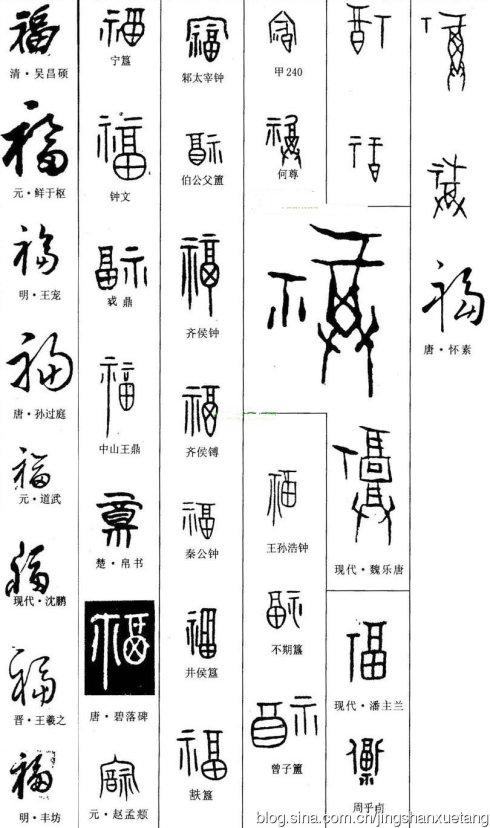 福
清·吴昌硕
福
元·鲜于枢
福
明·王宠
福
唐·孙过庭
福
元·道武
福
现代·沈鹏
福
晋·王羲之
福
明·丰坊
福
宁簋
福
钟文
福
或鼎
福
中山王鼎
福
楚·帛书
福
唐·碧落碑
福
元·赵孟頫
福
邾太宰钟
福
伯公父簠
福
齐侯钟
福
齐侯镈
福
秦公钟
福
井侯簋
福
簋
福
甲240
福
何尊
福
福
福
福
王孙浩钟
福
不期簋
福
曾子簠
福
现代·魏乐唐
福
现代·潘主兰
福
周乎卣
福
福
福
唐·怀素
blog.sina.com.cn/jingshanxuetang